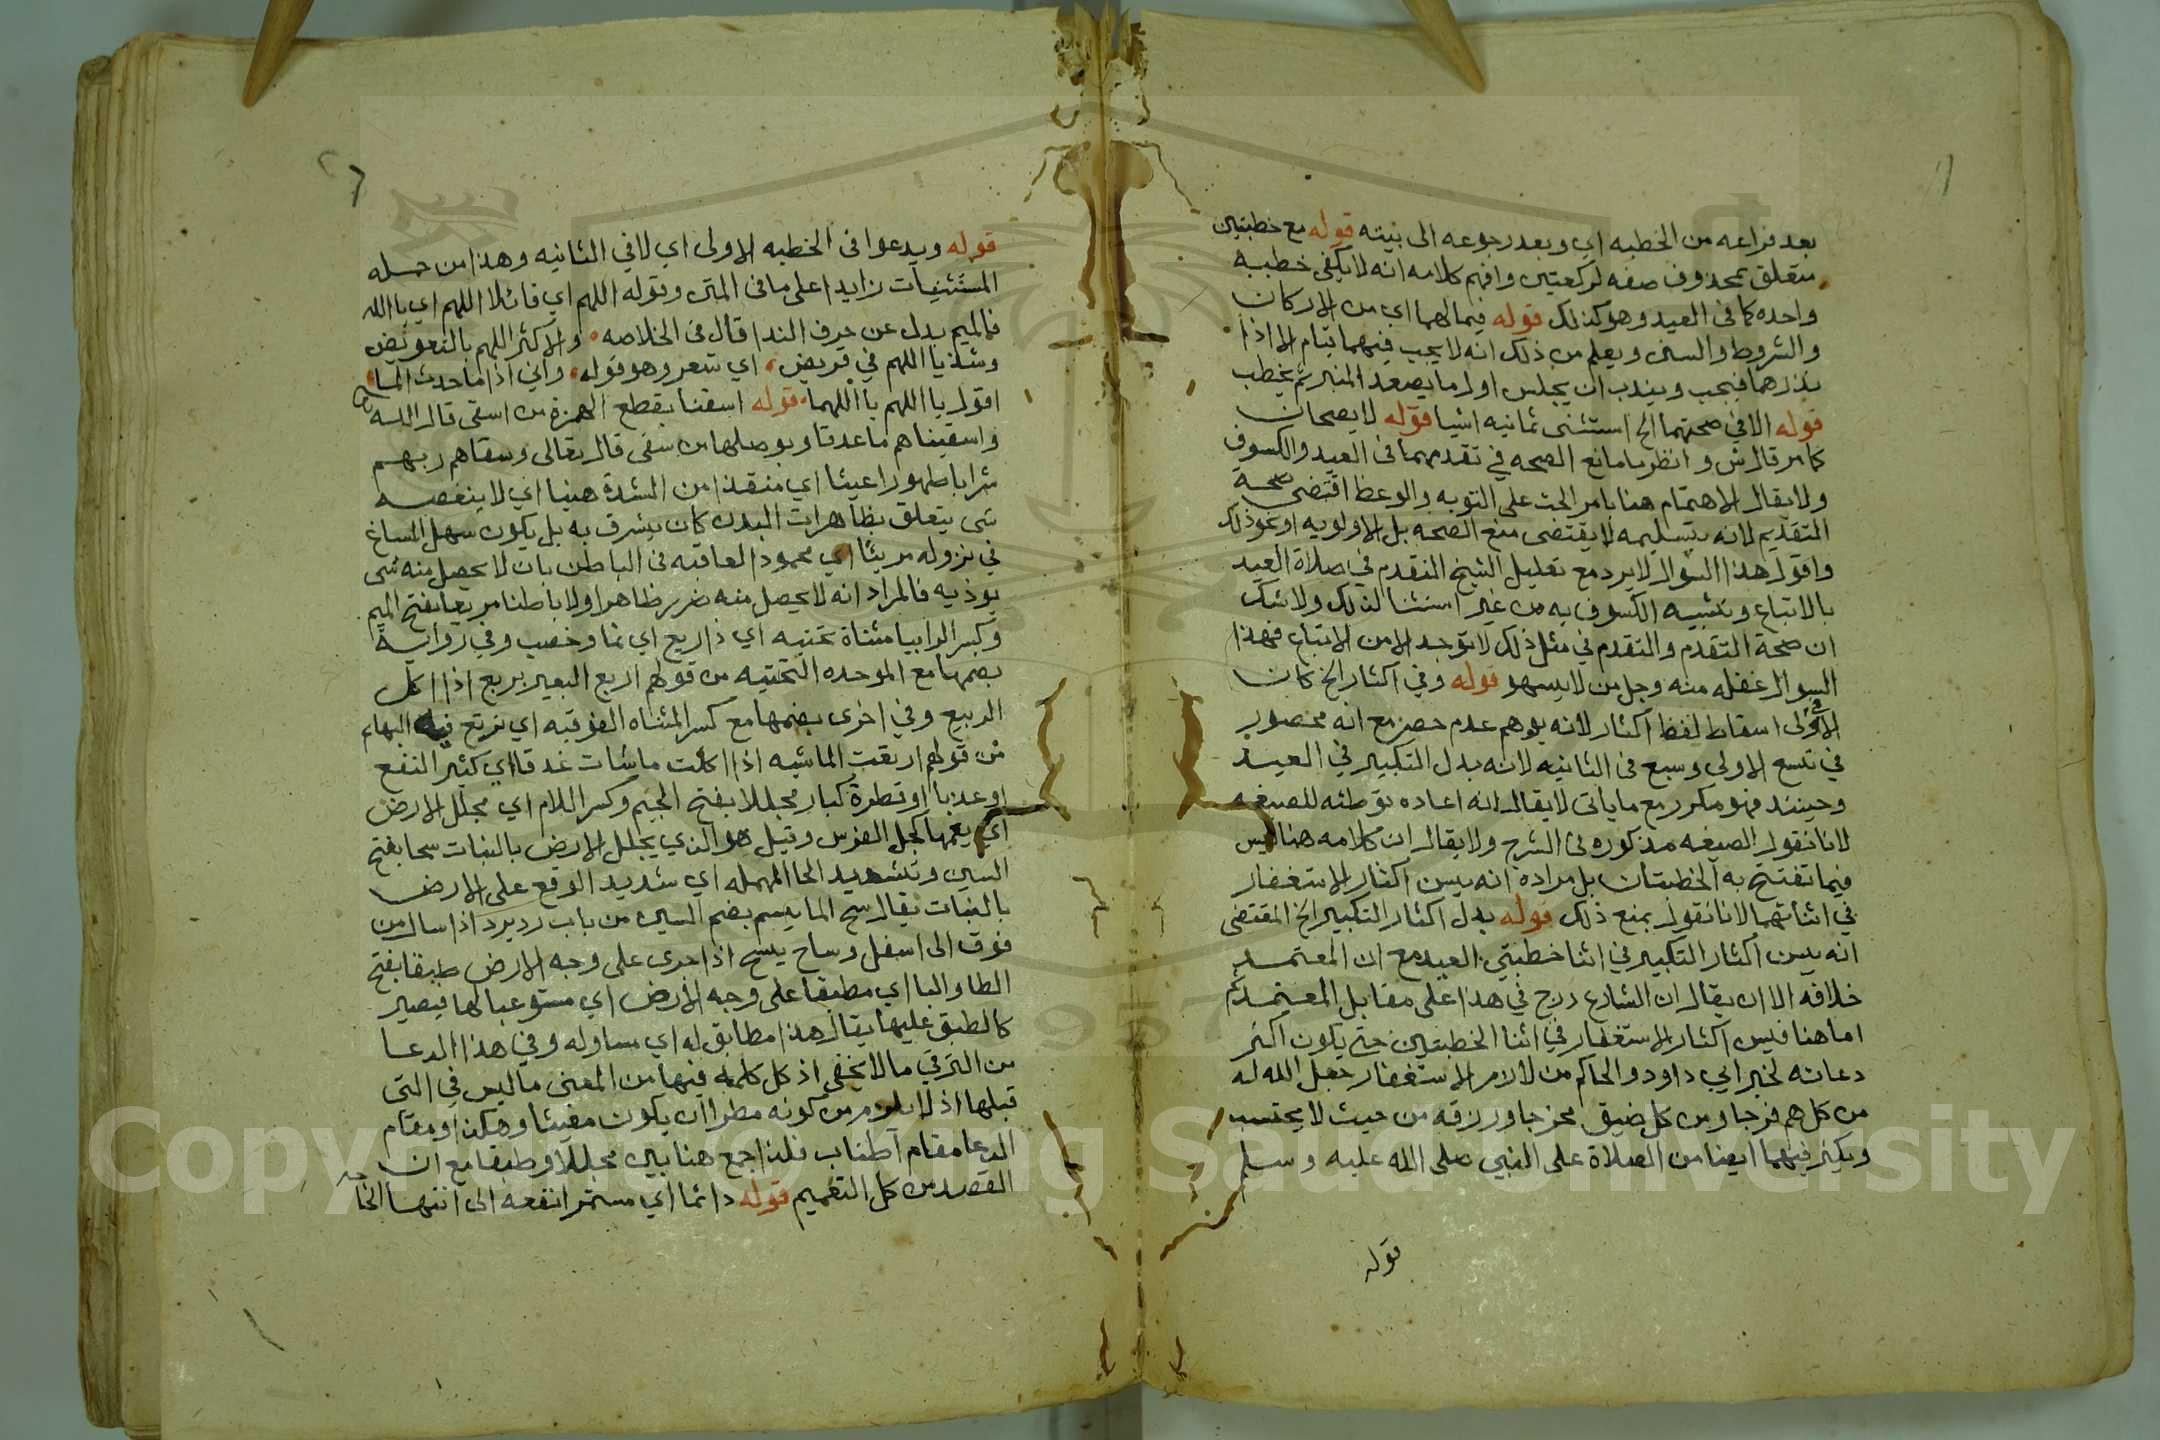 بعد فراغه من الخطبه اي وبعد رجوعه الى بيته قوله مع خطبتين
متعلق بمحذوف صفه لركعتين وافهم كلامه انه لا يكفي خطبه
واحده كما في العيد وهو كذلك قوله فيما لهما اي من الاركان
والشروط والسنن ويعلم من ذلك انه لا يجب فيهما قيام الا اذا
نذرهما فيجب ويندب ان يجلس اول ما يصعد المنبر ثم يخطب
قوله الا في صحتهما الخ استثنى ثمانيه اشيا قوله لا يصحان
كما مر قال ش وانظر ما مانع الصحه في تقدمهما في العيد والكسوف
ولا يقال الاهتمام هنا بامر الحث على التوبه والوعظ اقتضى صحة
التقديم لانه بتسليمه لا يقتضى منع الصحه بل الاولويه او نحو ذلك
واقول هذا السوال لا يرد مع تعليل الشيخ المتقدم في صلاة العيد
بالاتباع وتشبيه الكسوف به من غير استثنا لذلك ولا شك
ان صحة التقدم والتقدم في مثل ذلك لا توجد الا من الاتباع فهذا
السوال غفله منه وجل من لا يسهو قوله وفي اكثار الخ كان
الاولى اسقاط لفظ اكثار لانه يوهم عدم حصر مع انه محصور
في تسع الاولى وسبع في الثانيه لانه بدل التكبير في العيد
وحينئذ فهو مكرر مع ما ياتي لا يقال انه اعاده توطئه للصيغه
لانا نقول الصيغه مذكوره في الشرح ولا يقال ان كلامه هنا ليس
فيما تفتتح به الخطبتان بل مراده انه يسن اكثار الاستغفار
في اثنائهما لانا نقول يمنع ذلك قوله بدل اكثار التكبير الخ المقتضى
انه يسن اكثار التكبير في اثنا خطبتي العيد مع ان المعتمد
خلافه الا ان يقال ان الشارع درج في هذا على مقابل المعتمد
اما هنا فيسن اكثار الاستغفار في اثنا الخطبتين حتى يكون اكثر
دعائه لخبر ابي داود والحاكم من لازم الاستغفار جعل الله له
من كل هم فرجا ومن كل ضيق مخرجا ورزقه من حيث لا يحتسب
ويكثر فيهما ايضا من الصلاة على النبي صلى الله عليه وسلم
قوله
قوله ويدعوا في الخطبه الاولى اي لا في الثانيه وهذا من جمله
المستثنيات زايدا على ما في المتن وقوله اللهم اي قائلا اللهم اي يا الله
فالميم بدل عن حرف الندا قال في الخلاصه والاكثر اللهم بالتعويض
وشذ يا اللهم في قريض اي شعر وهو قوله واني اذا ما حدث الما
اقول يا اللهم يا اللهما قوله اسقنا بقطع الهمزة من اسقى قال الله
واسقيناهم ماء غدقا وبوصلها من سقى قال تعالى وسقاهم ربهم
شرابا طهورا غيثا اي منقذا من الشدة هنيا اي لا ينغصه
شي يتعلق بظاهرات البدن كان يشرق به بل يكون سهل المساغ
في نزوله مريئا اي محمود العاقبه في الباطن بان لا يحصل منه شي
يوذيه فالمراد انه لا يحصل منه ضرر ظاهرا ولا باطنا مريعا بفتح الميم
وكسر الرا بيا مثناة تحتيه اي ذا ريع اي نما وخصب وفي رواية
بضمها مع الموحده التحتيه من قولهم اربع البعير يربع اذا اكل
الربيع وفي اخرى بضمها مع كسر المثناه الفوقيه اي ترتع فيه البهائم
من قولهم ارتعت الماشيه اذا اكلت ما شات غدقا اي كثير النفع
او عذبا او قطرة كبار مجللا بفتح الجيم وكسر اللام اي مجلل الارض
اي يعمها كجل الفرس وقيل هو الذي يجلل الارض بالنبات سحا بفتح
السين وتشديد الحا المهمله اي شديد الوقع على الارض
بالنبات يقال سح الما يسح بضم السين من باب رد يرد اذا سال من
فوق الى اسفل وساح يسيح اذا جرى على وجه الارض طبقا بفتح
الطا والبا اي مطبقا على وجه الارض اي مستوعبا لها فيصير
كالطبق عليها يقال هذا مطابق له اي مساو له وفي هذا الدعا
من الترقي ما لا يخفى اذ كل كلمه فيها من المعنى ما ليس في التى
قبلها اذ لا يلزم من كونه مطرا ان يكون مغيثا وهكذا ومقام
الدعا مقام اطناب فلذا جمع هنا بين مجللا وطبقا مع ان
القصد من كل التعميم قوله دائما اي مستمرا نفعه الى انتها الحاجه
Copyright © King Saud University